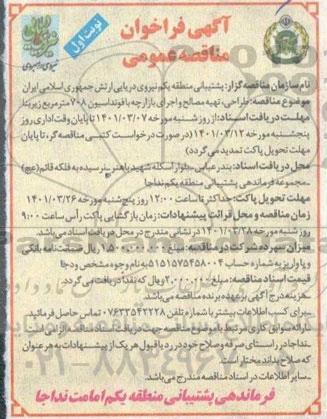 آگهی فراخوان
مناقصه عمومی
نوبت اول
نام سازمان مناقصه گزار: پشتیبانی منطقه یکم نیروی دریایی ارتش جمهوری اسلامی ایران
موضوع مناقصه: طراحی، تهیه مصالح و اجرای بازارچه با فونداسیون ۷۰۸ مترمربع زیربنا
مهلت دریافت اسناد: از روز شنبه مورخه ۱۴۰۱/۰۳/۰۷ تا پایان وقت اداری روز
پنجشنبه مورخه ۱۴۰۱/۰۳/۱۲ (در صورت درخواست کتبی مناقصه گر، تا پایان
مهلت تحویل پاکت تمدید می گردد)
محل دریافت اسناد: بندرعباس - بلوار اسکله شهید باهنر - نرسیده به فلکه قائم (عج)
- مجموعه فرماندهی پشتیبانی منطقه یکم نداجا
مهلت تحویل پاکت: حداکثر تا ساعت ۱۲:۰۰ روز پنج شنبه مورخه ۱۴۰۱/۰۳/۲۶
زمان و مکان و محل قرائت پیشنهادات: زمان بازگشایی پاکت رأس ساعت ۹:۰۰
روز شنبه مورخه ۱۴۰۱/۰۳/۲۸ در نشانی مندرج در محل دریافت اسناد می باشد.
میزان سپرده شرکت در مناقصه: مبلغ ریال ضمانت نامه بانکی
و یا واریز به شماره حساب به نام وجوه مشخص ودجا
قیمت اسناد مناقصه: مبلغ ۲.۰۰۰.۰۰۰ ریال که نقدا دریافت می گردد.
- هزینه درج آگهی برعهده برنده مناقصه می باشد.
- برای کسب اطلاعات بیشتر با شماره تلفن ۰۷۶۳۳۵۴۲۲۲۸ تماس حاصل فرمائید.
- ارائه سوابق کاری مرتبط با موضوع مناقصه جهت دریافت اسناد مناقصه الزامی است.
- نداجا در راستای صرفه و صلاح خود در رد یا قبول هریک از پیشنهادات به هر عنوان
که صلاح بداند مختار است.
- سایر اطلاعات در اسناد مناقصه مندرج می باشد.
فرماندهی پشتیبانی منطقه یکم امامت نداجا